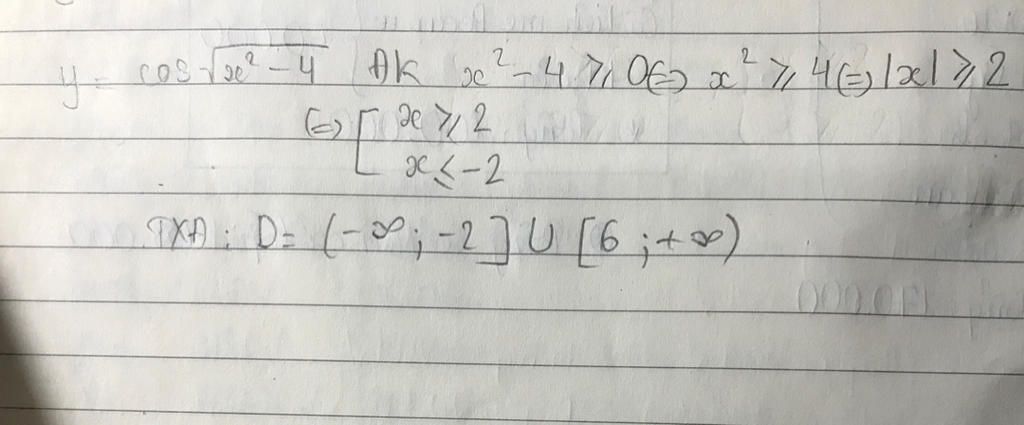 y = cos √(x² - 4) ĐK x² - 4 ⩾ 0 (=) x² ⩾ 4 (=) |x| ⩾ 2
(=) [ x ⩾ 2
x ⩽ -2
TXĐ : D = (-∞ ; -2] ∪ [6 ; +∞)